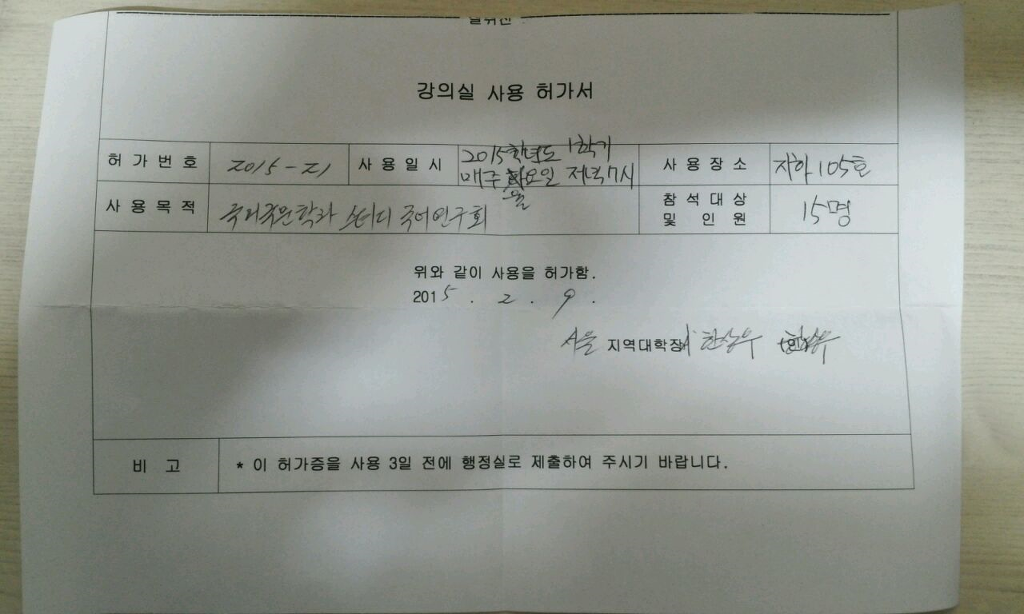 강의실 사용 허가서
허가번호 2015-21 사용일시 2015학년도 1학기
매주 요일 저녁 7시
사용장소 지하 105호
사용목적 국어국문학과 스터디 국어연구회 참석대상 및 인원 15명
위와 같이 사용을 허가함.
2015. 2. 9.
서울 지역대학장
비 고 * 이 허가증을 사용 3일 전에 행정실로 제출하여 주시기 바랍니다.